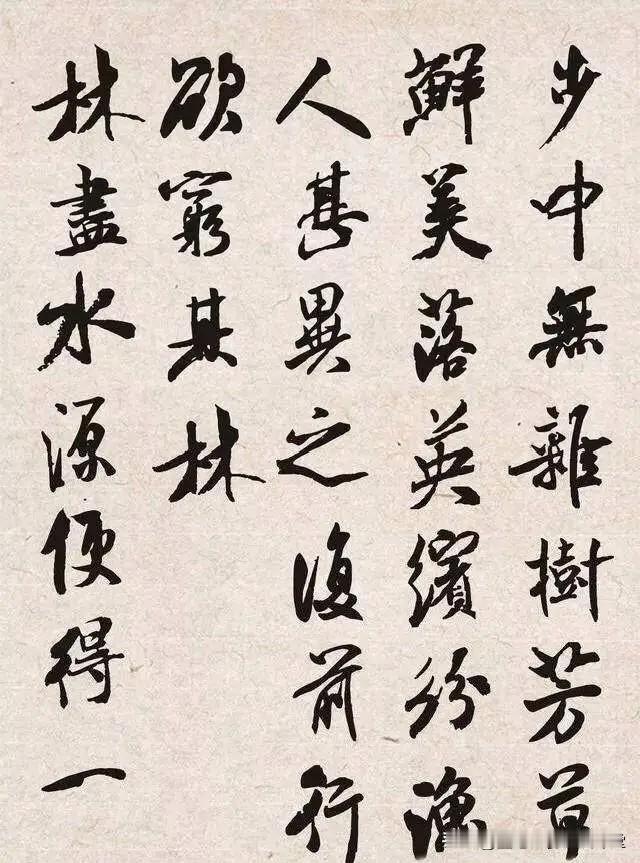 步中無雜樹芳草
鮮美落英繽紛漁
人甚異之復前行
欲窮其林
林盡水源便得一